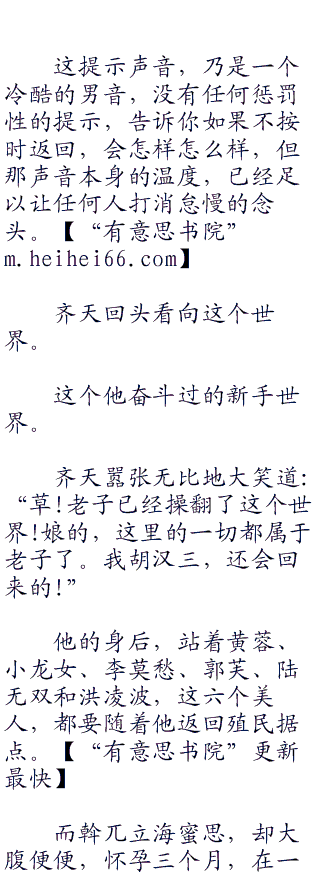 这提示声音，乃是一个
冷酷的男音，没有任何惩罚
性的提示，告诉你如果不按
时返回，会怎样怎么样，但
那声音本身的温度，已经足
以让任何人打消怠慢的念
头。【“有意思书院”
m.heihei66.com】
齐天回头看向这个世
界。
这个他奋斗过的新手世
界。
齐天嚣张无比地大笑道：
“草！老子已经操翻了这个世
界！娘的，这里的一切都属于
老子了。我胡汉三，还会回
来的！”
他的身后，站着黄蓉、
小龙女、李莫愁、郭芙、陆
无双和洪凌波，这六个美
人，都要随着他返回殖民据
点。【“有意思书院”更新
最快】
而斡兀立海蜜思，却大
腹便便，怀孕三个月，在一